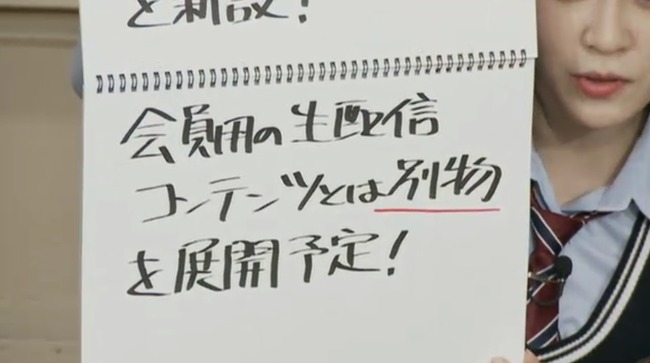 を新設!
会員用の生配信
コンテンツとは別物
を展開予定!